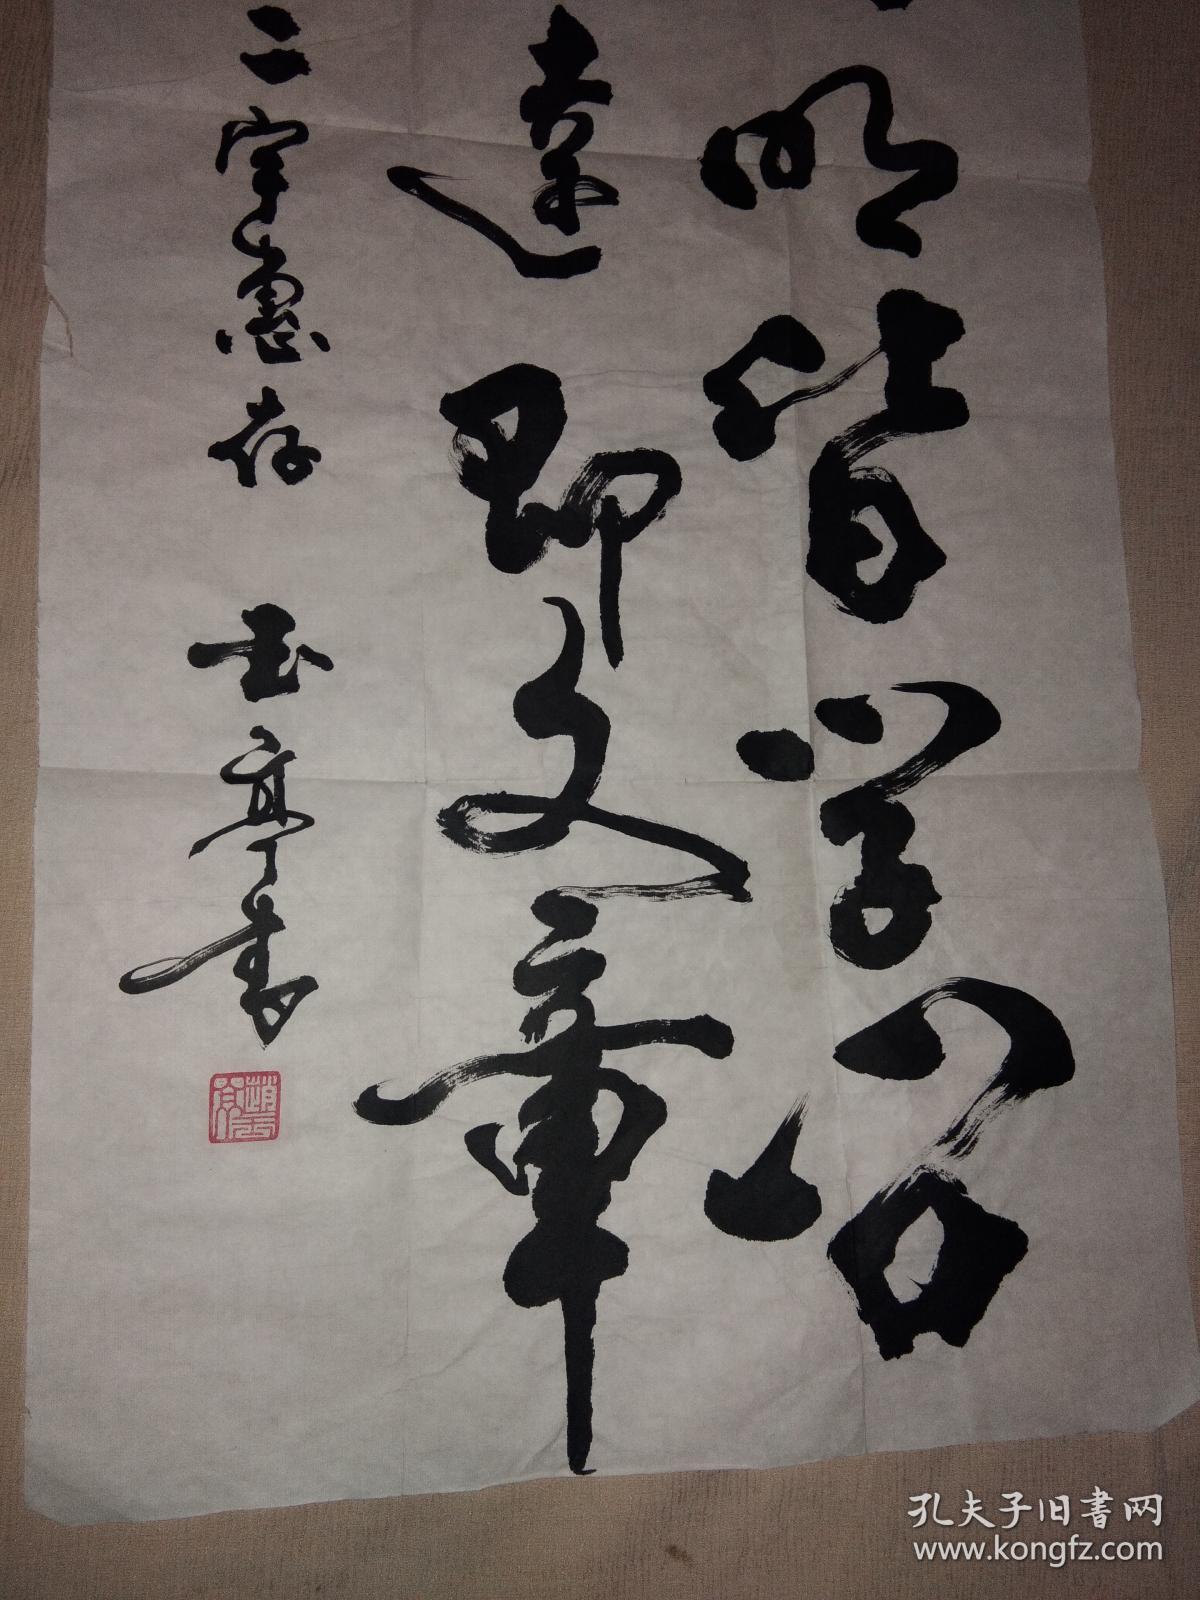 明皆学问
達即文章
二宇惠存 玉亭書
孔夫子旧书网
www.kongfz.com